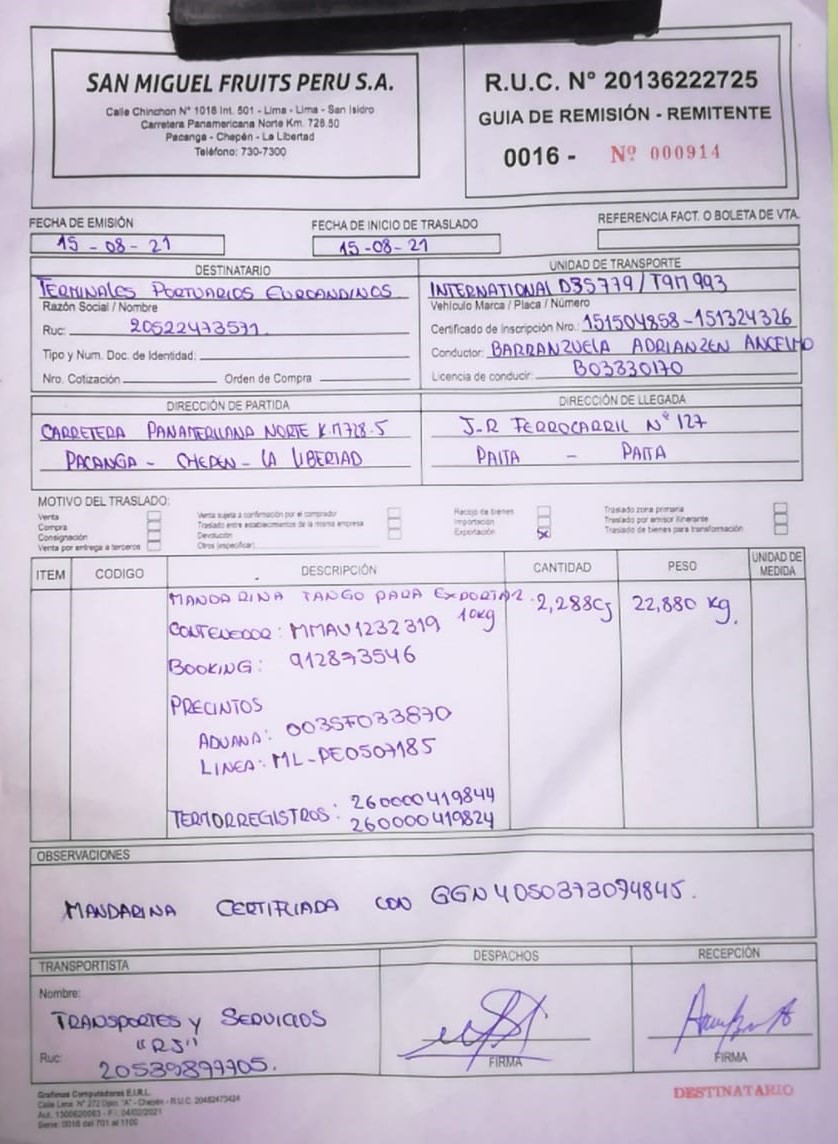 SAN MIGUEL FRUITS PERU S.A.
Calle Chinchon N° 1018 Int. 501 - Lima - Lima - San Isidro
Carretera Panamericana Norte Km. 728.50
Pacanga - Chepén - La Libertad
Teléfono: 730-7300
R.U.C. N° 20136222725
GUIA DE REMISIÓN - REMITENTE
0016 - Nº 000914
FECHA DE EMISIÓN
15 - 08 - 21
FECHA DE INICIO DE TRASLADO
15 - 08 - 21
REFERENCIA FACT. O BOLETA DE VTA.
DESTINATARIO
TERMINALES PORTUARIOS EUROANDINOS
Razón Social / Nombre
Ruc: 20522473571
Tipo y Num. Doc. de Identidad:
Nro. Cotización Orden de Compra
UNIDAD DE TRANSPORTE
INTERNATIONAL D3S779 / T9M993
Vehículo Marca / Placa / Número
Certificado de Inscripción Nro.: 151504858-151324326
Conductor: BARRANZUELA ADRIANZEN ANCELMO
Licencia de conducir: B03330170
DIRECCIÓN DE PARTIDA
CARRETERA PANAMERICANA NORTE K.M728.5
PACANGA - CHEPEN - LA LIBERTAD
DIRECCIÓN DE LLEGADA
J-R FERROCARRIL N° 127
PAITA - PAITA
MOTIVO DEL TRASLADO:
Venta
Compra
Consignación
Venta por entrega a terceros
Venta sujeta a confirmación por el comprador
Traslado entre establecimientos de la misma empresa
Devolución
Otros (especificar)
Recojo de bienes
Importación
Exportación X
Traslado zona primaria
Traslado por emisor itinerante
Traslado de bienes para transformación
ITEM CODIGO DESCRIPCIÓN CANTIDAD PESO UNIDAD DE MEDIDA
MANDARINA TANGO PARA EXPORTAR 2,288Cj 22,880 kg.
10kg
CONTENEDOR: MMAU1232319
BOOKING: 912873546
PRECINTOS
ADUANA: 0035F033870
LINEA: ML-PE0507185
TERMORREGISTROS: 260000419844
260000419824
OBSERVACIONES
MANDARINA CERTIFICADA CON GGN 4050373094845.
TRANSPORTISTA
Nombre:
TRANSPORTES y SERVICIOS
"RJ"
Ruc: 20539897705.
DESPACHOS
FIRMA
RECEPCIÓN
FIRMA
Grafimas Computadores E.I.R.L.
Calle Lima N° 272 Dpto. "A" - Chepén - R.U.C. 20482473424
Aut. 1300620063 - F.I. 04/02/2021
Serie: 0016 del 701 al 1100
DESTINATARIO